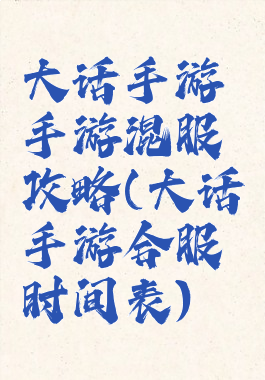 大话手游
手游混服
攻略(大话
手游合服
时间表)